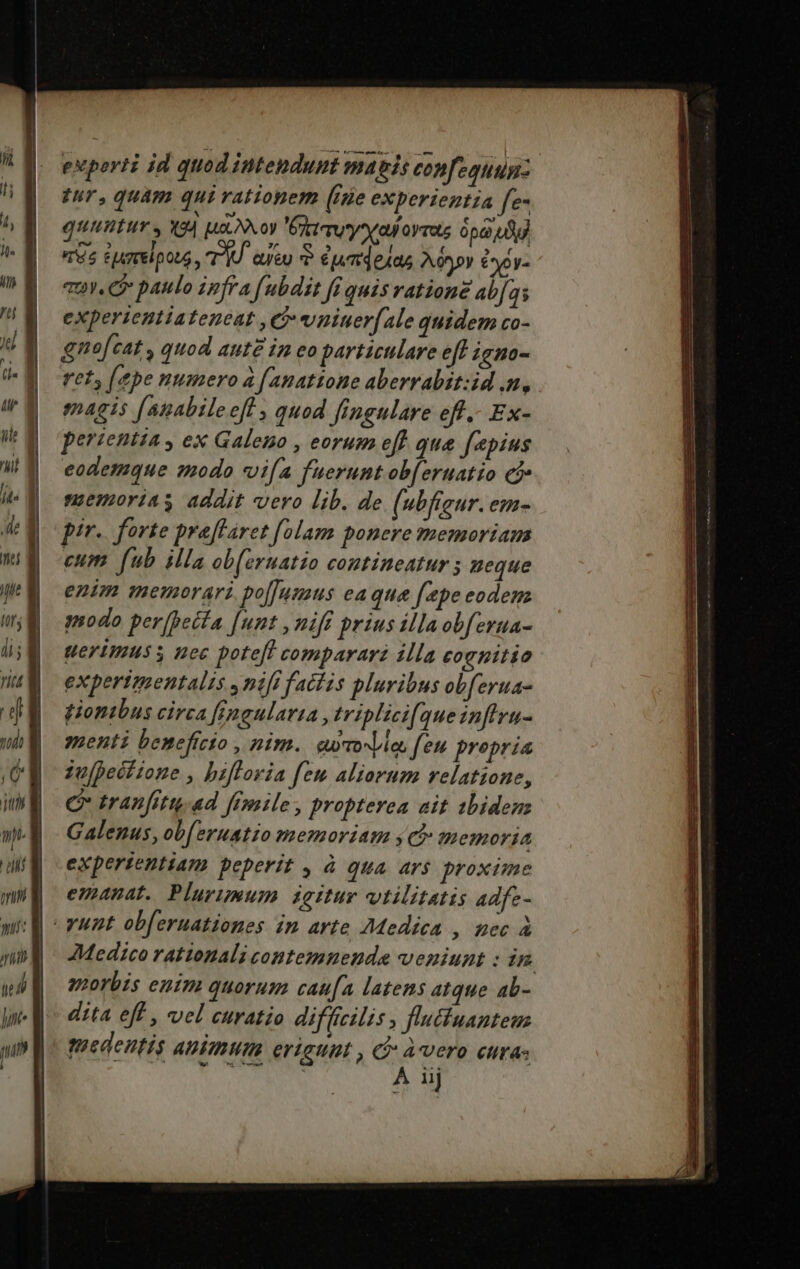 experti id quod intendunt magis consequun-
tur, quàm qui rationem sine experientia se-
quuntur, καὶ μᾶλλον ἐπιτυγχάνοντας ὁρῶμεν
τοὺς ἐμπείρους, τῶν ἄνευ τῆς ἐμπειρίας λόγον ἐχόν-
των. & paulo infra subdit si quis rationē absq;
experientia teneat, & vniuersale quidem co-
gnoscat, quod autē in eo particulare est igno-
ret, sæpe numero à sanatione aberrabit: id .n.
magis sanabile est, quod singulare est. Ex-
perientia, ex Galeno, eorum est quæ sæpius
eodemque modo visa fuerunt obseruatio &
memoria; addit vero lib. de subfigur. em-
pir. forte præstaret solam ponere memoriam
cum sub illa obseruatio contineatur; neque
enim memorari possumus ea quæ sæpe eodem
modo perspecta sunt, nisi prius illa obserua-
uerimus; nec potest comparari illa cognitio
experimentalis, nisi factis pluribus obserua-
tionibus circa singularia, triplicisque instru-
menti beneficio, nim. αὐτοψία seu propria
inspectione, historia seu aliorum relatione,
& transitu ad simile, propterea ait ibidem
Galenus, obseruatio memoriam, & memoria
experientiam peperit, à qua ars proxime
emanat. Plurimum igitur vtilitatis adfe-
runt obseruationes in arte Medica, nec à
Medico rationali contemnendæ veniunt: in
morbis enim quorum causa latens atque ab-
dita est, vel curatio difficilis, fluctuantem
medentis animum erigunt, & à vero cura-
A iij